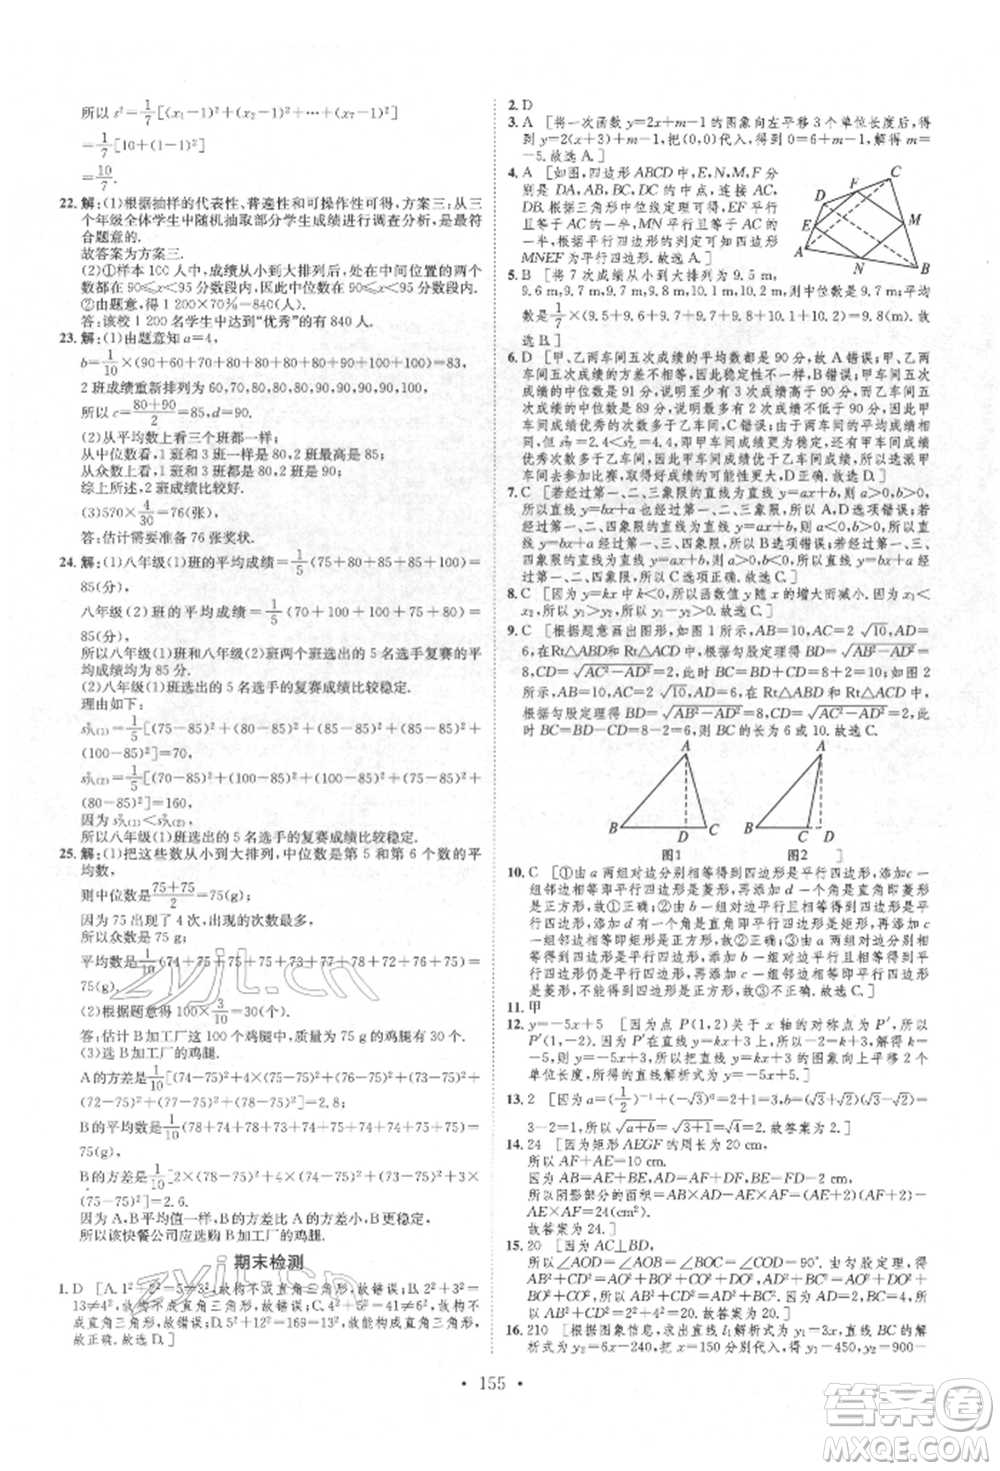 所以 s²=1/7[(x₁-1)²+(x₂-1)²+…+(x₇-1)²]
=1/7[10+(1-1)²]
=10/7.
22. 解:(1)根据抽样的代表性、普遍性和可操作性可得,方案三:从三
个年级全体学生中随机抽取部分学生成绩进行调查分析,是最符
合题意的.
故答案为方案三.
(2)①样本 100 人中,成绩从小到大排列后,处在中间位置的两个
数都在 90≤x<95 分数段内,因此中位数在 90≤x<95 分数段内.
②由题意得,1 200×70%=840(人).
答:该校 1 200 名学生中达到“优秀”的有 840 人.
23. 解:(1)由题意知 a=4,
b=1/10×(90+60+70+80+80+80+80+90+100+100)=83,
2 班成绩重新排列为 60,70,80,80,80,90,90,90,90,100,
所以 c=(80+90)/2=85,d=90.
(2)从平均数上看三个班都一样;
从中位数看,1 班和 3 班一样是 80,2 班最高是 85;
从众数上看,1 班和 3 班都是 80,2 班是 90;
综上所述,2 班成绩比较好.
(3)570×4/30=76(张),
答:估计需要准备 76 张奖状.
24. 解:(1)八年级(1)班的平均成绩=1/5(75+80+85+85+100)=
85(分),
八年级(2)班的平均成绩=1/5(70+100+100+75+80)=
85(分).
所以八年级(1)班和八年级(2)班两个班选出的 5 名选手复赛的
平均成绩均为 85 分.
(2)八年级(1)班选出的 5 名选手的复赛成绩比较稳定.
理由如下:
s²八(1)=1/5[(75-85)²+(80-85)²+(85-85)²+(85-85)²+
(100-85)²]=70,
s²八(2)=1/5[(70-85)²+(100-85)²+(100-85)²+(75-85)²+
(80-85)²]=160,
因为 s²八(1)<s²八(2)
所以八年级(1)班选出的 5 名选手的复赛成绩比较稳定.
25. 解:(1)把这些数从小到大排列,中位数是第 5 和第 6 个数的平
均数,
则中位数是(75+75)/2=75(g);
因为 75 出现了 4 次,出现的次数最多,
所以众数是 75 g;
平均数是1/10(74+75+75+75+73+77+78+72+76+75)=
75(g);
(2)根据题意得:100×3/10=30(个),
答:估计 B 加工厂这 100 个鸡腿中,质量为 75 g 的鸡腿有 30 个;
(3)选 B 加工厂的鸡腿.
A 的方差是1/10[(74-75)²+4×(75-75)²+(76-75)²+(73-75)²+
(72-75)²+(77-75)²+(78-75)²]=2.8;
B 的平均数是1/10(78+74+78+73+74+75+74+74+75+75)=
75,
B 的方差是1/10[2×(78-75)²+4×(74-75)²+(73-75)²+3×
(75-75)²]=2.6.
因为 A,B 平均值一样,B 的方差比 A 的方差小,B 更稳定,
所以该快餐公司应选购 B 加工厂的鸡腿.
期末检测
1. D [A. 1²+2²=5≠3²,故构不成直角三角形,故错误;B. 2²+3²=
13≠4²,故构不成直角三角形,故错误;C. 4²+5²=41≠6²,故构不
成直角三角形,故错误;D. 5²+12²=169=13²,故能构成直角三角形,
故正确. 故选 D.]
2. D
3. A [将一次函数 y=2x+m-1 的图象向左平移 3 个单位长度后,得
到 y=2(x+3)+m-1,把(0,0)代入,得到 0=6+m-1,解得 m=
-5. 故选 A.]
4. A [如图,四边形 ABCD 中,E,N,M,F 分
别是 DA,AB,BC,DC 的中点,连接 AC,
DB. 根据三角形中位线定理可得,EF 平行
且等于 AC 的一半,MN 平行且等于 AC 的
一半,根据平行四边形的判定,可知四边形
MNEF 为平行四边形. 故选 A.]
D F C
E M
A N B
5. B [将 7 次成绩从小到大排列为 9.5 m,
9.6 m,9.7 m,9.8 m,9.9 m,10.1 m,10.2 m,所以中位数为 9.8 m,平
均数是1/7×(9.5+9.6+9.7+9.8+9.9+10.1+10.2)=9.8(m). 故
选 B.]
6. D [甲、乙两车间五次成绩的平均数都是 90 分,故 A 错误;甲、乙两
车间五次成绩的方差不相等,故 B 错误;甲车间的中位数是 90 分,乙
车间的成绩的中位数是 91 分,所以甲车间成绩的优秀次数比乙车间
成绩的优秀次数少,甲车间最少是 2 次,乙车间最少是 3 次,因此甲车
间优秀的次数少于乙车间,故 C 错误;甲车间成绩的平均数等于乙车
间,但 s²甲=2.4<s²乙=4.4,即甲车间成绩比较稳定,而乙车间成绩的
优秀次数多于甲车间,即乙车间成绩较好,所以选派甲车间去参加比
赛,取得好成绩的可能性比较大,故 D 正确. 故选 D.]
7. C [若经过第一、二、三象限的直线为直线 y=ax+b,则 a>0,b>0,
所以直线 y=bx+a 经过第一、二、三象限,所以 A,D 选项错误;若经
过第一、二、四象限的直线为直线 y=ax+b,则 a<0,b>0,所以直线
y=bx+a 经过第一、三、四象限,所以 B 选项错误;若经过第一、三、四
象限的直线为直线 y=ax+b,则 a>0,b<0,所以直线 y=bx+a 经过
第一、二、四象限,所以 C 选项正确. 故选 C.]
8. C [因为 k=1>0,所以函数值 y 随 x 的增大而增大. 因为 x₁<x₂<
x₃,所以 y₁<y₂<y₃. 故选 C.]
9. C [根据题意画出图形,如图 1 所示,AB=10,AC=2√10,AD=
6,在 Rt△ABD 和 Rt△ACD 中,根据勾股定理得 BD=√(AB²-AD²)=
8,CD=√(AC²-AD²)=2,此时 BC=BD+CD=8+2=10;如图 2
所示,AB=10,AC=2√10,AD=6,在 Rt△ABD 和 Rt△ACD 中,
根据勾股定理得 BD=√(AB²-AD²)=8,CD=√(AC²-AD²)=2,此
时 BC=BD-CD=8-2=6,则 BC 的长为 6 或 10. 故选 C.
A A
B D C B C D
图1 图2 ]
10. C [①由 a 两组对边分别相等的四边形是平行四边形,添加 c 一
组邻边相等的平行四边形是菱形,再添加 d 一个角是直角即菱形
是正方形,故①正确;②由 b 一组对边平行且相等的四边形是平行
四边形,添加 d 有一个角是直角的平行四边形是矩形,再添加 c 一
组邻边相等即矩形是正方形,故②正确;③由 a 两组对边分别相等
的四边形是平行四边形,添加 b 一组对边平行且相等的平行四边
形仍是平行四边形,再添加 c 一组邻边相等的平行四边形是菱形,
不能得到四边形是正方形,故③不正确. 故选 C.]
11. 甲
12. y=-5x+5 [因为点 P(1,2)关于 x 轴的对称点为 P′,所以
P′(1,-2). 因为 P′在直线 y=kx+3 上,所以-2=k+3,解得 k=
-5,则 y=-5x+3,所以把直线 y=kx+3 的图象向上平移 2 个单
位长度后,所得的直线解析式为 y=-5x+5.]
13. 2 [因为 a=(1/2)⁻¹+(-√3)⁰=2+1=3,b=(√3+√2)(√3-√2)=
3-2=1,所以√(a+b)=√(3+1)=√4=2. 故答案为 2.]
14. 24 [因为矩形 AEGF 的周长为 20 cm,
所以 AF+AE=10 cm.
因为 AB=AE+BE,AD=AF+DF,BE=DF=2 cm,
故答案为 24.]
15. 20 [因为 AC⊥BD,
所以∠AOD=∠AOB=∠BOC=∠COD=90°.
故答案为 20.]
16. 210 [根据图象信息,求出直线 l₁ 解析式为 y₁=3x,直线 l₂ 解析
式为 y₂=6x-240,把 x=150 分别代入,得 y₁=450,y₂=900-
155
zyjl.cn
zyjl.cn
答案圈
MXQE.COM